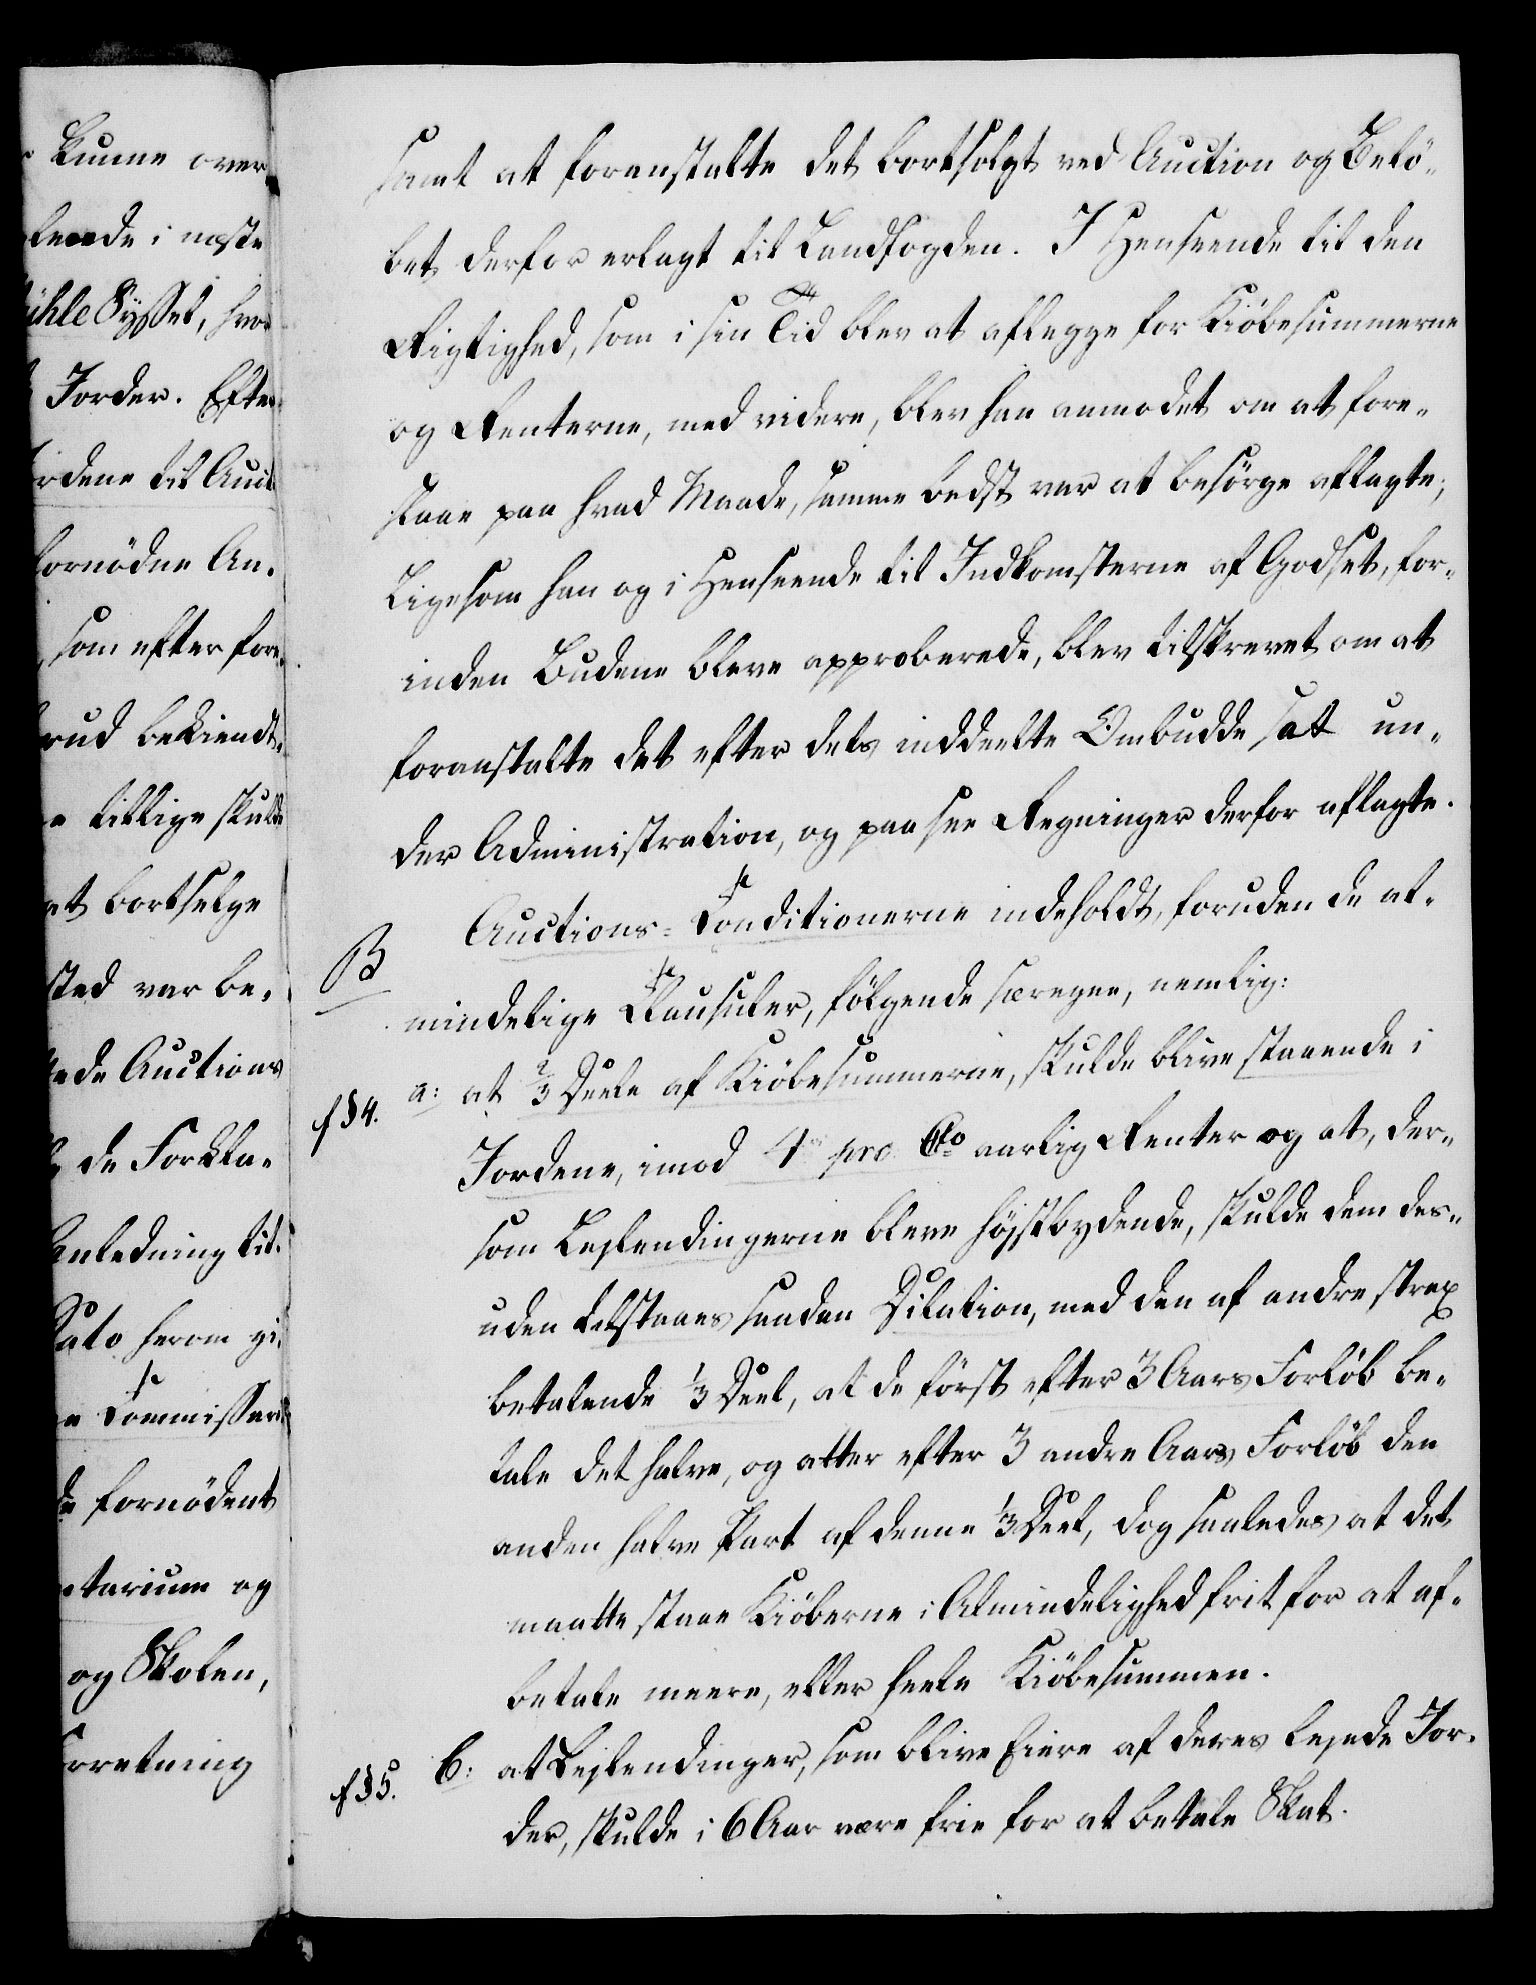 Lunne over
leede i næste
ühle Sysset, hvor
Jorder. Efter
rdene til Auct
fornödne An-
som efter fore-
rud bekiendt-
e tillige skulde
at bortselge
sted var be-
ede Auctions
de Forkla-
Anledning til
Dato herom gi-
e Commisser
de fornödent
tarium og
og Skolen,
orretning
samt at foranstalte det bortsolgt ved Auction og Belö-
bet derfor erlagt til Landfogden. I Henseende til den
Rigtighed, som i sin Tid blev at aflegge for Kiöbesummerne
og Renterne, med videre, blev han anmodet om at fore-
slaae paa hvad Maade, samme bedst var at besörge aflagte;
Ligesom han og i Henseende til Indkomsterne af Godset, for-
inden Budene bleve approberede, blev tilskrevet om at
foranstalte det efter dets inddeelte Ombudde sat un-
der Administration, og paasee Regninger derfor aflagte.
B
Auctions-Conditionerne indeholdt, foruden de al-
mindelige Clausuler, fölgende særegne, nemlig:
f § 4.
a: at 2/3 Deele af Kiöbesummerne, skulde blive staaende i
Jordene, imod 4 pro Cto aarlig Renter og at, der-
som Leilendingerne bleve höjstbydende, skulde dem des-
uden tilstaaes saadan Dilation, med den af andre strax
betalende 1/3 Deel, at de först efter 3 Aars Forlöb be-
tale det halve, og atter efter 3 andre Aars Forlöb den
anden halve Part af denne 1/3 Deel, dog saaledes at det
maatte staae Kiöberne i Almindelighed frit for at af-
betale meere, eller heele Kiöbesummen.
f § 5.
b: at Leilendinger, som blive Eiere af deres leiede Jor-
der, skulde i 6 Aar være frie for at betale Skat.